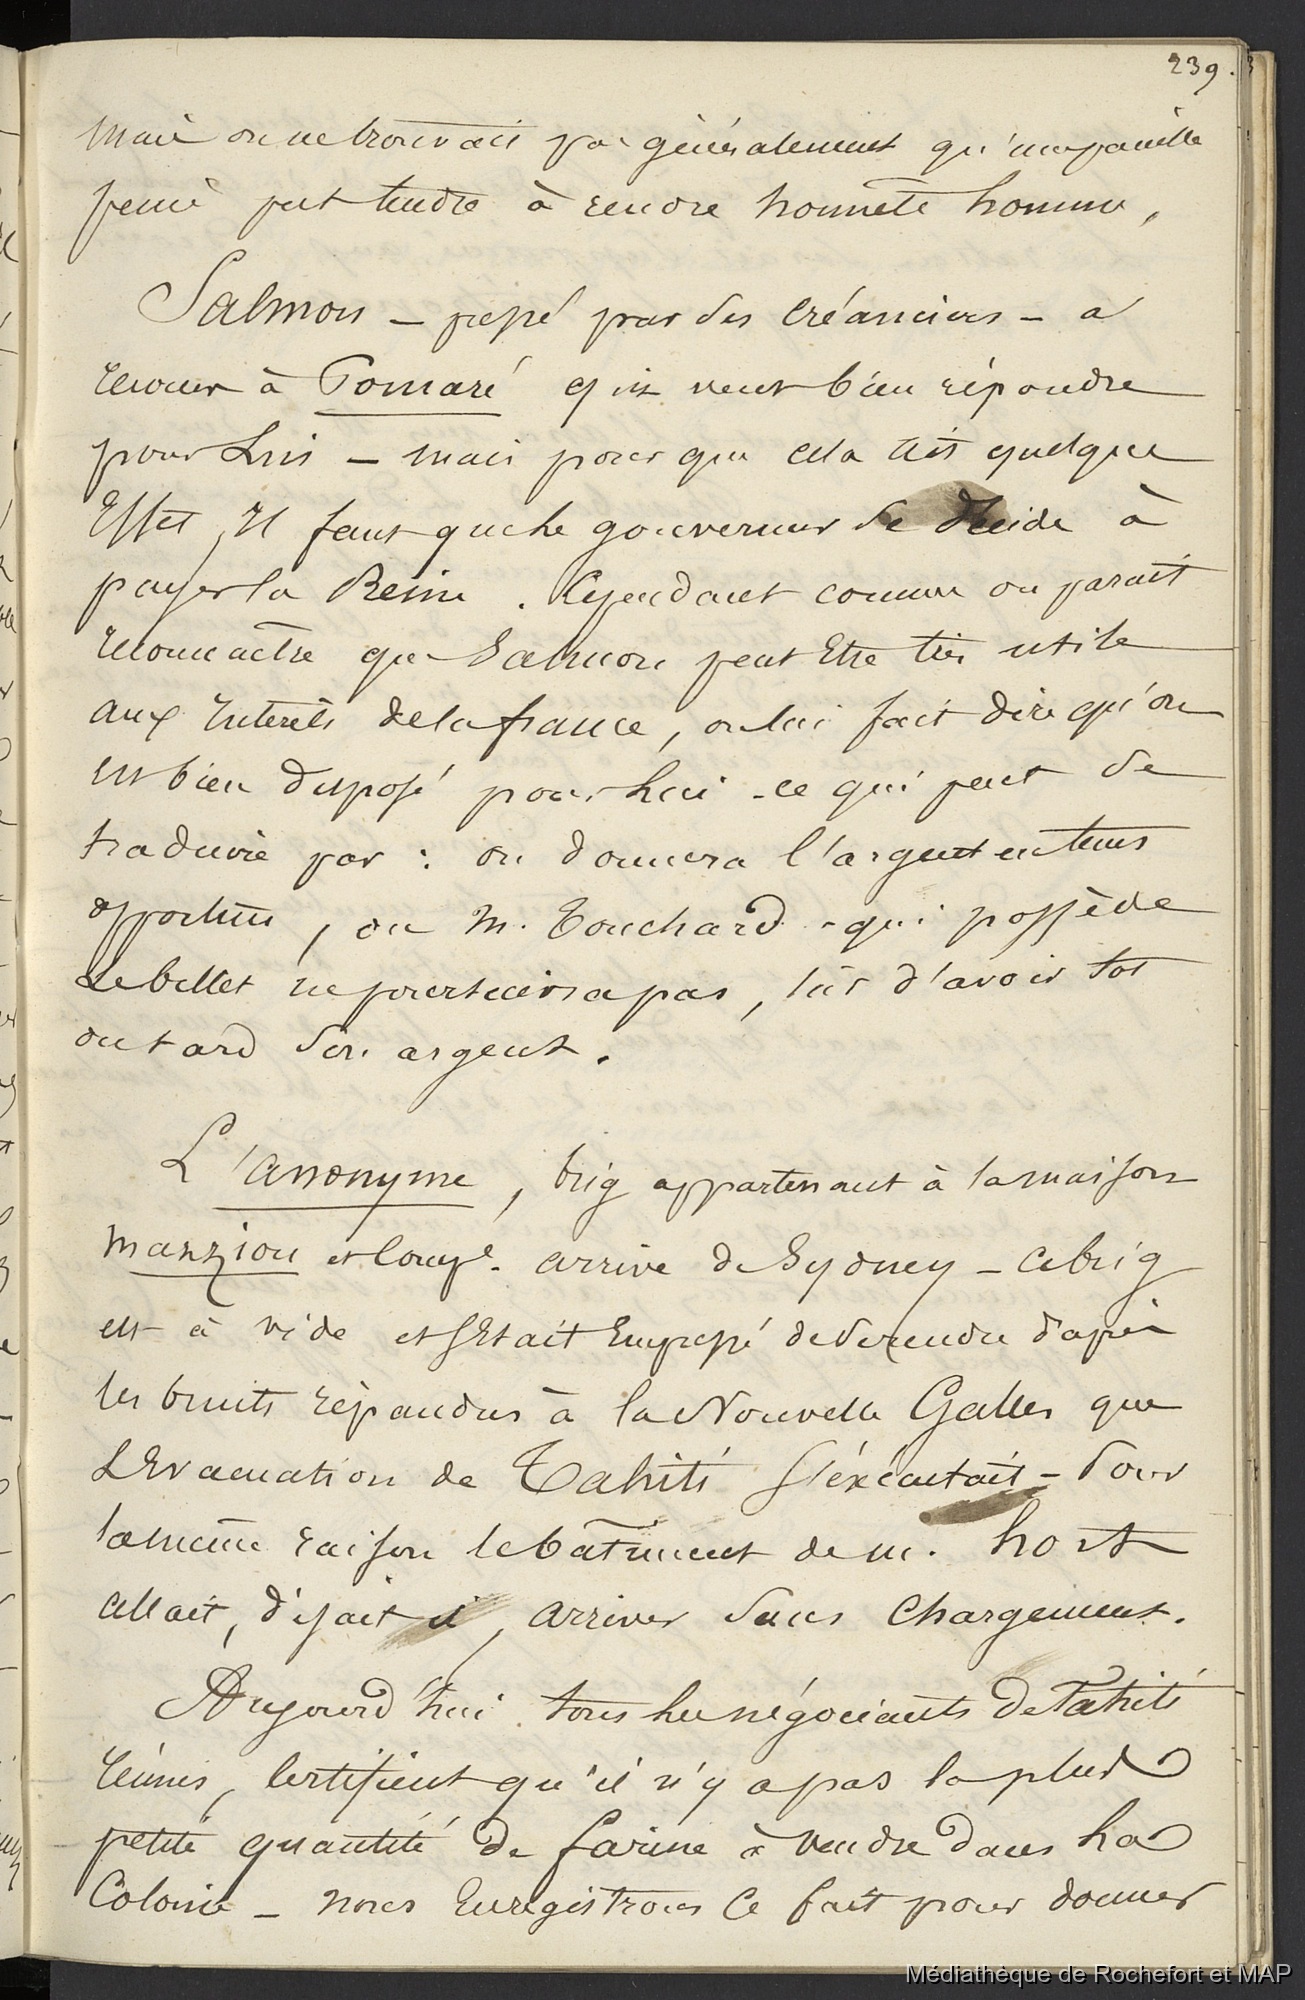 239.
mais on ne trouvait pas généralement qu'une pareille
peine put tendre à rendre honnête homme,
Salmon – pressé par des créanciers – a
recours à Pomaré qui veut bien répondre
pour Lui – mais pour que cela ait quelque
Effet, Il faut que le gouverneur se décide à
payer la Reine. Cependant comme on parait
reconnaître que Salmon peut Etre très utile
aux Intérêts de la france, on lui fait dire qu'on
est bien disposé pour Lui - ce qui peut se
traduire par : on donnera l'argent en tems
opportun, ou M. Touchard - qui possède
Le billet ne poursuivra pas, sûr d'avoir tot
ou tard son argent.
L'anonyme, brig appartenant à la maison
manzion et Compe. arrive de Sydney – ce brig
est à vide et s'Etait Empressé de se rendre d'après
les bruits répandus à la Nouvelle Galles que
L'Evacuation de Tahiti s'éxécutait – Pour
la même raison le bâtiment de m. hort
allait, disait il, arriver sans Chargement.
Aujourd'hui tous les négociants de Tahiti
réunis, Certifient qu'il n'y a pas la plus
petite quantité de farine à vendre dans La
Colonie – nous Enregistrons Ce fait pour donner
Médiathèque de Rochefort et MAP